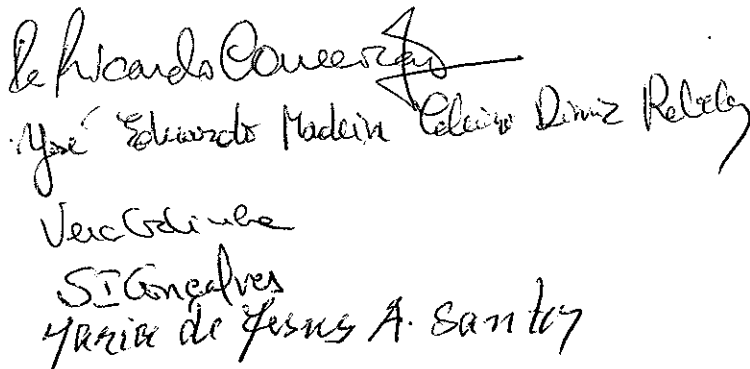 Pe Ricardo Conceição
José Eduardo Madeira Diniz Rebelo
Vera Godinho
S I Gonçalves
Maria de Jesus A. Santos